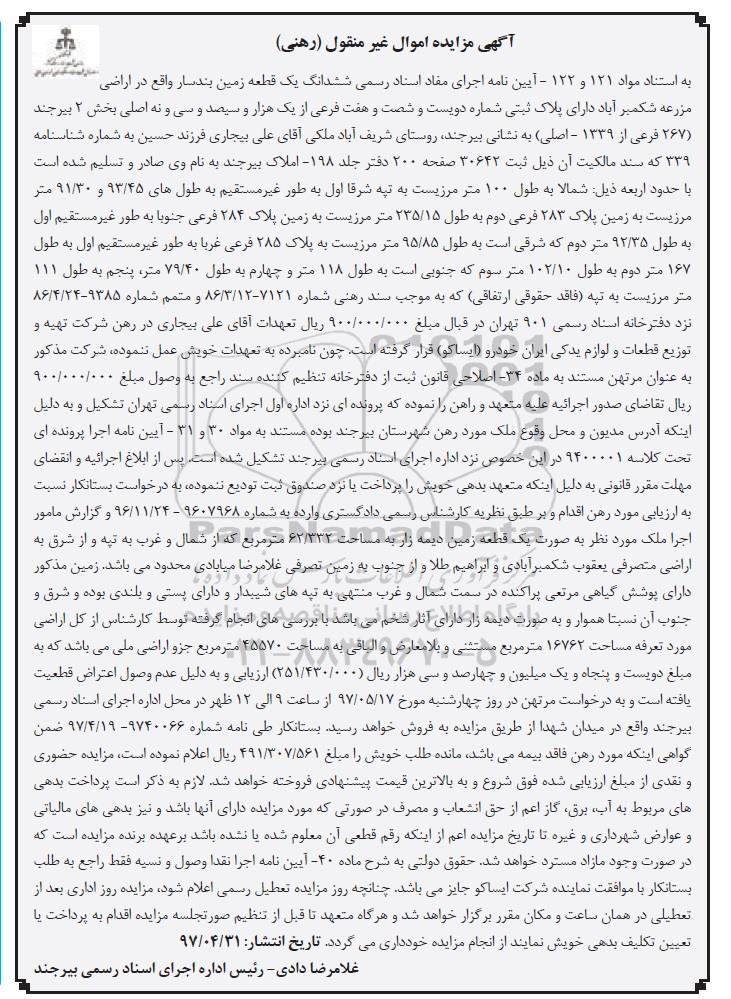 آگهی مزایده اموال غیر منقول (رهنی)
به استناد مواد ۱۲۱ و ۱۲۲ - آیین نامه اجرای مفاد اسناد رسمی ششدانگ یک قطعه زمین بندسار واقع در اراضی
مزرعه شکمبر آباد دارای پلاک ثبتی شماره دویست و شصت و هفت فرعی از یک هزار و سیصد و سی و نه اصلی بخش ۲ بیرجند
(۲۶۷ فرعی از ۱۳۳۹ - اصلی) به نشانی بیرجند، روستای شریف آباد ملکی آقای علی بیجاری فرزند حسین به شماره شناسنامه
۳۳۹ که سند مالکیت آن ذیل ثبت ۳۰۶۴۲ صفحه ۲۰۰ دفتر جلد ۱۹۸- املاک بیرجند به نام وی صادر و تسلیم شده است
با حدود اربعه ذیل: شمالا به طول ۱۰۰ متر مرزیست به تپه شرقا اول به طور غیرمستقیم به طول های ۹۳/۴۵ و ۹۱/۳۰ متر
مرزیست به زمین پلاک ۲۸۳ فرعی دوم به طول ۲۳۵/۱۵ متر مرزیست به زمین پلاک ۲۸۴ فرعی جنوبا به طور غیرمستقیم اول
به طول ۹۲/۳۵ متر دوم که شرقی است به طول ۹۵/۸۵ متر مرزیست به پلاک ۲۸۵ فرعی غربا به طور غیرمستقیم اول به طول
۱۶۷ متر دوم به طول ۱۰۲/۱۰ متر سوم که جنوبی است به طول ۱۱۸ متر و چهارم به طول ۷۹/۴۰ متر، پنجم به طول ۱۱۱
متر مرزیست به تپه (فاقد حقوقی ارتفاقی) که به موجب سند رهنی شماره ۷۱۲۱-۸۶/۳/۱۲ و متمم شماره ۹۳۸۵-۸۶/۴/۲۴
نزد دفترخانه اسناد رسمی ۹۰۱ تهران در قبال مبلغ ۹۰۰/۰۰۰/۰۰۰ ریال تعهدات آقای علی بیجاری در رهن شرکت تهیه و
توزیع قطعات و لوازم یدکی ایران خودرو (ایساکو) قرار گرفته است. چون نامبرده به تعهدات خویش عمل ننموده، شرکت مذکور
به عنوان مرتهن مستند به ماده ۳۴- اصلاحی قانون ثبت از دفترخانه تنظیم کننده سند راجع به وصول مبلغ ۹۰۰/۰۰۰/۰۰۰
ریال تقاضای صدور اجرائیه علیه متعهد و راهن را نموده که پرونده ای نزد اداره اول اجرای اسناد رسمی تهران تشکیل و به دلیل
اینکه آدرس مدیون و محل وقوع ملک مورد رهن شهرستان بیرجند بوده مستند به مواد ۳۰ و ۳۱ - آیین نامه اجرا پرونده ای
تحت کلاسه ۹۴۰۰۰۰۱ در این خصوص نزد اداره اجرای اسناد رسمی بیرجند تشکیل شده است. پس از ابلاغ اجرائیه و انقضای
مهلت مقرر قانونی به دلیل اینکه متعهد بدهی خویش را پرداخت یا نزد صندوق ثبت تودیع ننموده، به درخواست بستانکار نسبت
به ارزیابی مورد رهن اقدام و بر طبق نظریه کارشناس رسمی دادگستری وارده به شماره ۹۶۰۷۹۶۸ - ۹۶/۱۱/۲۴ و گزارش مامور
اجرا ملک مورد نظر به صورت یک قطعه زمین دیمه زار به مساحت ۶۲/۳۳۲ مترمربع که از شمال و غرب به تپه و از شرق به
اراضی متصرفی یعقوب شکمبرآبادی و ابراهیم طلا و از جنوب به زمین تصرفی غلامرضا میابادی محدود می باشد. زمین مذکور
دارای پوشش گیاهی مرتعی پراکنده در سمت شمال و غرب منتهی به تپه های شیبدار و دارای پستی و بلندی بوده و شرق و
جنوب آن نسبتا هموار و به صورت دیمه زار دارای آثار شخم می باشد با بررسی های انجام گرفته توسط کارشناس از کل اراضی
مورد تعرفه مساحت ۱۶۷۶۲ مترمربع مستثنی و بلامعارض و الباقی به مساحت ۴۵۵۷۰ مترمربع جزو اراضی ملی می باشد که به
مبلغ دویست و پنجاه و یک میلیون و چهارصد و سی هزار ریال (۲۵۱/۴۳۰/۰۰۰) ارزیابی و به دلیل عدم وصول اعتراض قطعیت
یافته است و به درخواست مرتهن در روز چهارشنبه مورخ ۹۷/۰۵/۱۷ از ساعت ۹ الی ۱۲ ظهر در محل اداره اجرای اسناد رسمی
بیرجند واقع در میدان شهدا از طریق مزایده به فروش خواهد رسید. بستانکار طی نامه شماره ۹۷۴۰۰۶۶- ۹۷/۴/۱۹ ضمن
گواهی اینکه مورد رهن فاقد بیمه می باشد، مانده طلب خویش را مبلغ ۴۹۱/۳۰۷/۵۶۱ ریال اعلام نموده است، مزایده حضوری
و نقدی از مبلغ ارزیابی شده فوق شروع و به بالاترین قیمت پیشنهادی فروخته خواهد شد. لازم به ذکر است پرداخت بدهی
های مربوط به آب، برق، گاز اعم از حق انشعاب و مصرف در صورتی که مورد مزایده دارای آنها باشد و نیز بدهی های مالیاتی
و عوارض شهرداری و غیره تا تاریخ مزایده اعم از اینکه رقم قطعی آن معلوم شده یا نشده باشد برعهده برنده مزایده است که
در صورت وجود مازاد مسترد خواهد شد. حقوق دولتی به شرح ماده ۴۰- آیین نامه اجرا نقدا وصول و نسیه فقط راجع به طلب
بستانکار با موافقت نماینده شرکت ایساکو جایز می باشد. چنانچه روز مزایده تعطیل رسمی اعلام شود، مزایده روز اداری بعد از
تعطیلی در همان ساعت و مکان مقرر برگزار خواهد شد و هرگاه متعهد تا قبل از تنظیم صورتجلسه مزایده اقدام به پرداخت یا
تعیین تکلیف بدهی خویش نمایند از انجام مزایده خودداری می گردد. تاریخ انتشار: ۹۷/۰۴/۳۱
غلامرضا دادی- رئیس اداره اجرای اسناد رسمی بیرجند
ParsNamadData
پایگاه اطلاع رسانی مناقصه و مزایده
۰۲۱-۸۸۳۴۹۶۷۰-۵